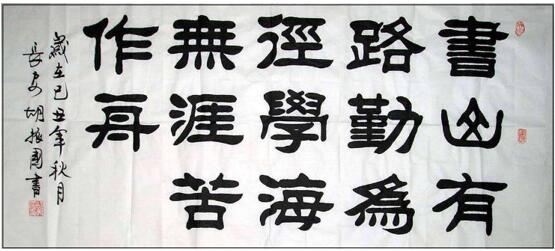 書山有
路勤為
徑學海
無涯苦
作舟
歲在己丑年秋月
長安胡振國書